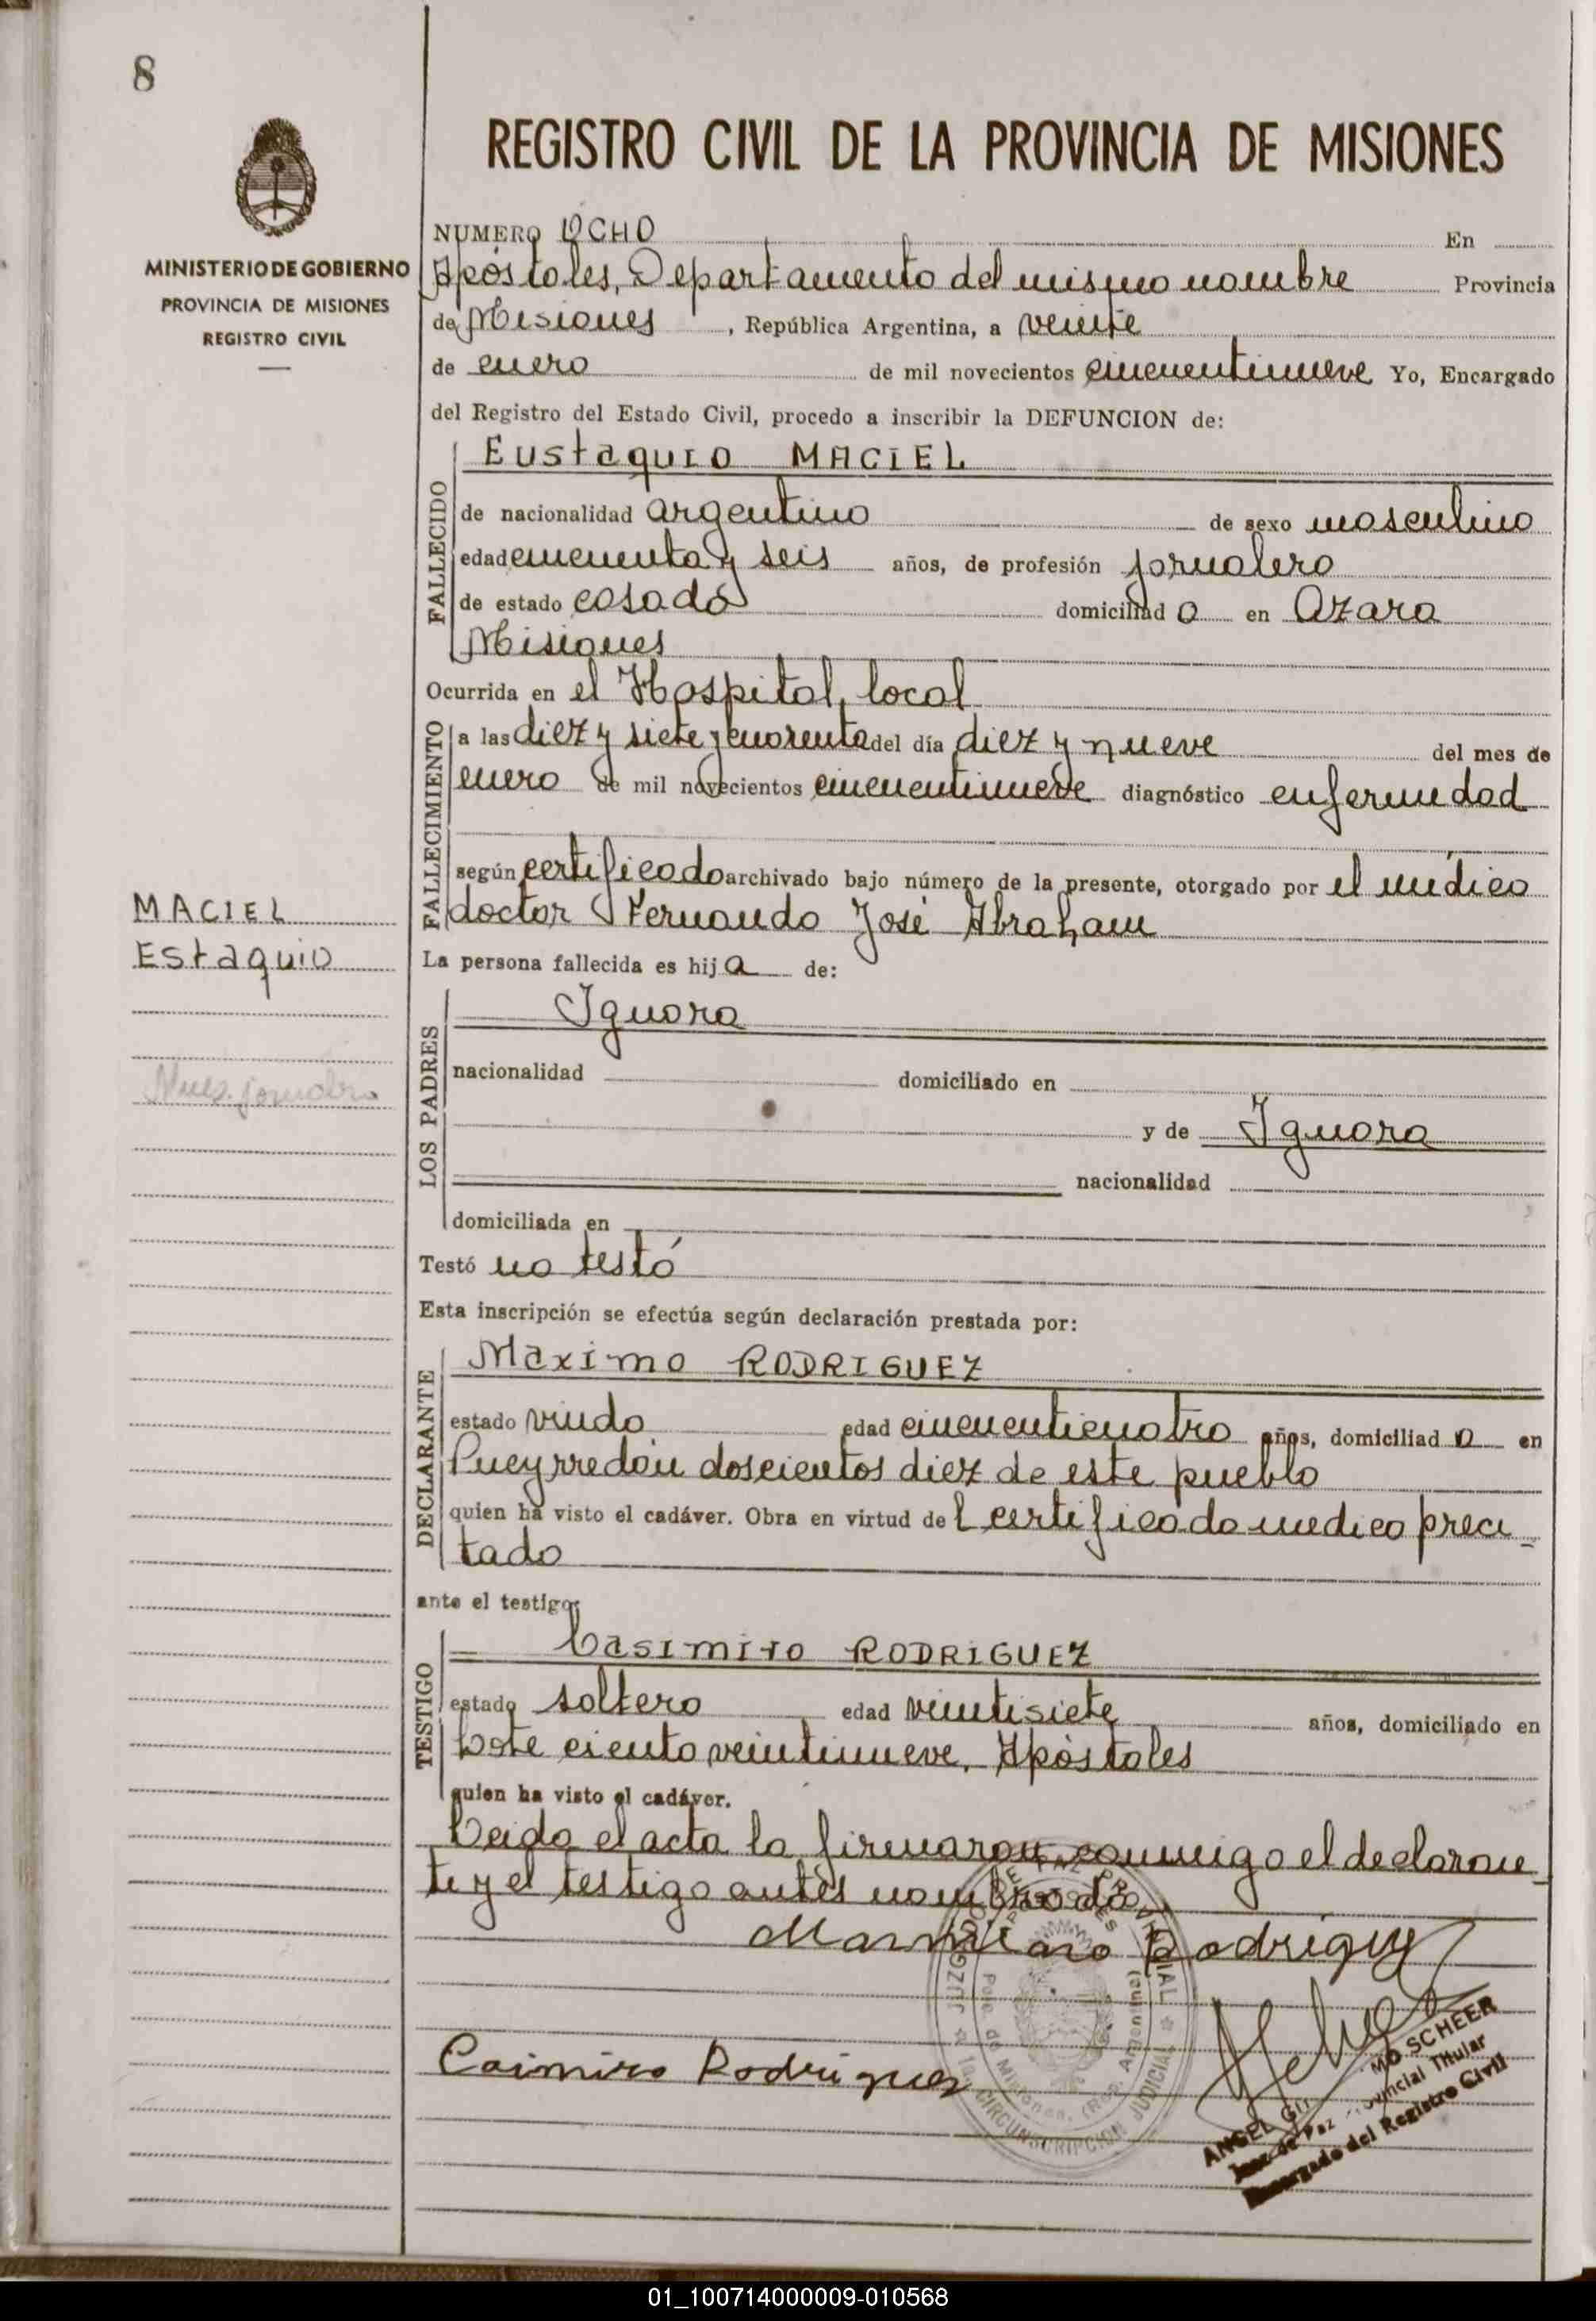 8
REGISTRO CIVIL DE LA PROVINCIA DE MISIONES
MINISTERIO DE GOBIERNO
PROVINCIA DE MISIONES
REGISTRO CIVIL
NUMERO OCHO En
Apóstoles, Departamento del mismo nombre Provincia
de Misiones, República Argentina, a veinte
de enero de mil novecientos cincuentinueve Yo, Encargado
del Registro del Estado Civil, procedo a inscribir la DEFUNCION de:
FALLECIDO
Eustaquio MACIEL
de nacionalidad argentino de sexo masculino
edad cincuenta y seis años, de profesión jornalero
de estado casado domiciliad o en Azara
Misiones
Ocurrida en el Hospital local
FALLECIMIENTO
a las diez y siete y cuarenta del día diez y nueve del mes de
enero de mil novecientos cincuentinueve diagnóstico enfermedad
según certificado archivado bajo número de la presente, otorgado por el médico
doctor Fernando José Abraham
MACIEL
Estaquio
La persona fallecida es hij a de:
LOS PADRES
Ignora
nacionalidad domiciliado en
y de Ignora
nacionalidad
domiciliada en
Testó no testó
Esta inscripción se efectúa según declaración prestada por:
DECLARANTE
Maximo RODRIGUEZ
estado viudo edad cincuenticuatro años, domiciliad o en
Pueyrredón doscientos diez de este pueblo
quien ha visto el cadáver. Obra en virtud de l certificado medico preci-
tado
ante el testigo:
TESTIGO
Casimiro RODRIGUEZ
estado soltero edad veintisiete años, domiciliado en
Lote ciento veintinueve, Apóstoles
quien ha visto el cadáver.
Leida el acta la firmaron conmigo el declaran-
te y el testigo antes nombrado
Rodriguez
Casimiro Rodriguez
JUZGADO DE PAZ
1a. CIRCUNSCRIPCION JUDICIAL
Pcia. de Misiones, (Rep. Argentina)
ANGEL MO SCHEER
Juez de Paz Provincial Titular
Encargado del Registro Civil
01_100714000009-010568